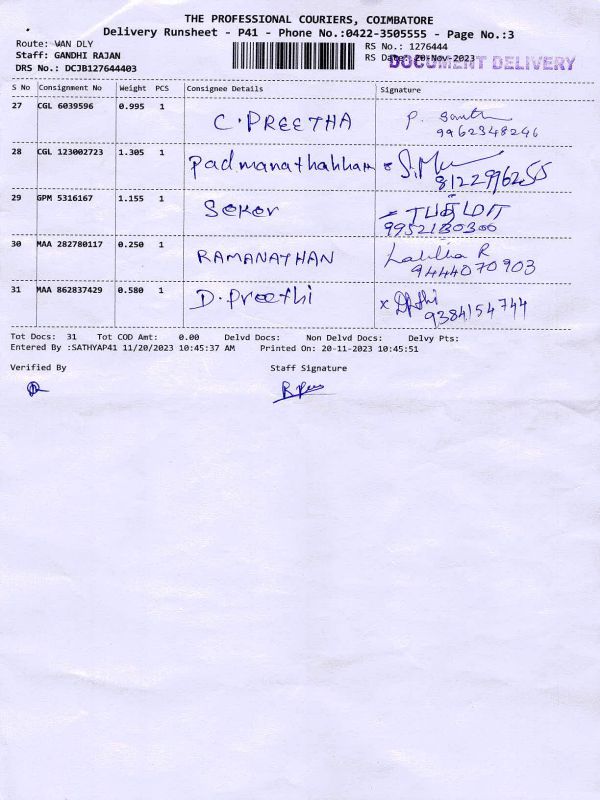 THE PROFESSIONAL COURIERS, COIMBATORE
Delivery Runsheet - P41 - Phone No.:0422-3505555 - Page No.:3
Route: VAN DLY
RS No.: 1276444
Staff: GANDHI RAJAN
RS Date: 20-Nov-2023
DOCUMENT DELIVERY
DRS No.: DCJB127644403
S No Consignment No Weight PCS Consignee Details Signature
27 CGL 6039596 0.995 1 C.PREETHA P.
9962348246
28 CGL 123002723 1.305 1
8122996255
29 GPM 5316167 1.155 1 Seker
9952130300
30 MAA 282780117 0.250 1 RAMANATHAN Lalitha R
9444070903
31 MAA 862837429 0.580 1 D.Preethi x
9384154744
Tot Docs: 31 Tot COD Amt: 0.00 Delvd Docs: Non Delvd Docs: Delvy Pts:
Entered By :SATHYAP41 11/20/2023 10:45:37 AM Printed On: 20-11-2023 10:45:51
Verified By Staff Signature